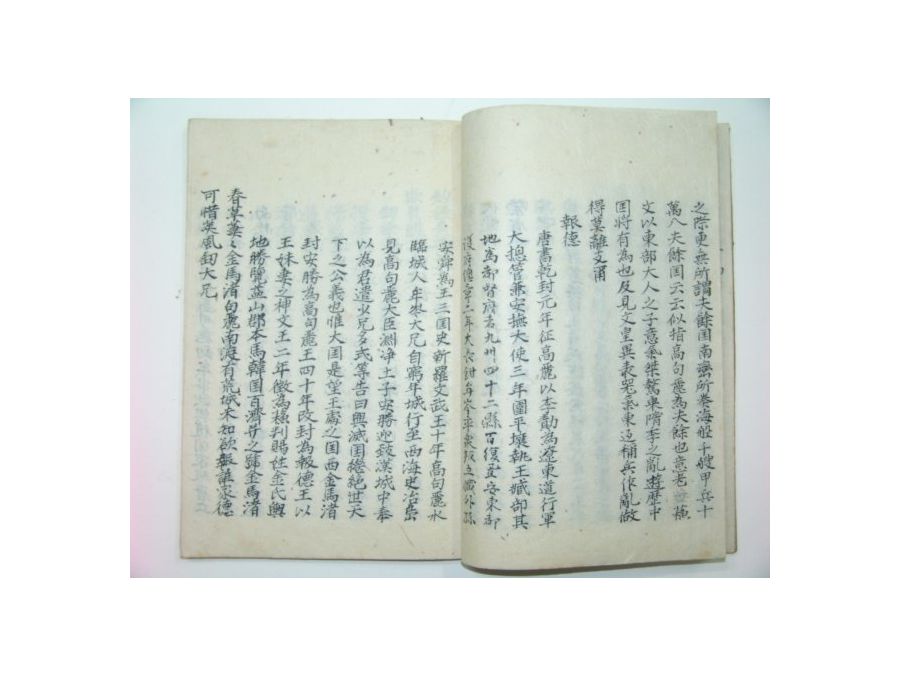 之際更無所謂夫餘国南蛮所奏海舩千艘甲兵十
萬入夫餘国云云似指高句麗為夫餘也意者蓋蘇
文以東部大人之子意氣桀驁隋季之亂遊歷中
国将有為也及見文皇異表罢東还稱兵作亂做
得莫離支甫
報德
唐書乾封元年征高麗以李勣為遼東道行軍
大摠管兼安撫大使三年圍平壤執王臧部其
地為都督府者九州四十二縣百復置安東都
護府總章二年大長鉗牟岑率衆叛立臧外孫
安舜為王三国史新羅文武王十年高句麗水
臨城人牟岑大兄自窮牟城行至西海史冶島
見高句麗大臣淵净土子安勝迎致漢城中奉
以為君遣少兄多式等告曰興滅国繼絶世天
下之公義也惟大国是望王處之国西金馬渚
封安勝為高句麗王四十年改封為報德王以
王妹妻之神文王二年徵為蘇判賜姓金氏輿
地勝覽益山郡本馬韓国百濟并之号金馬渚
春草萋萋金馬渚句麗南渡有荒城未知欲報誰家德
可惜英風釰大兄